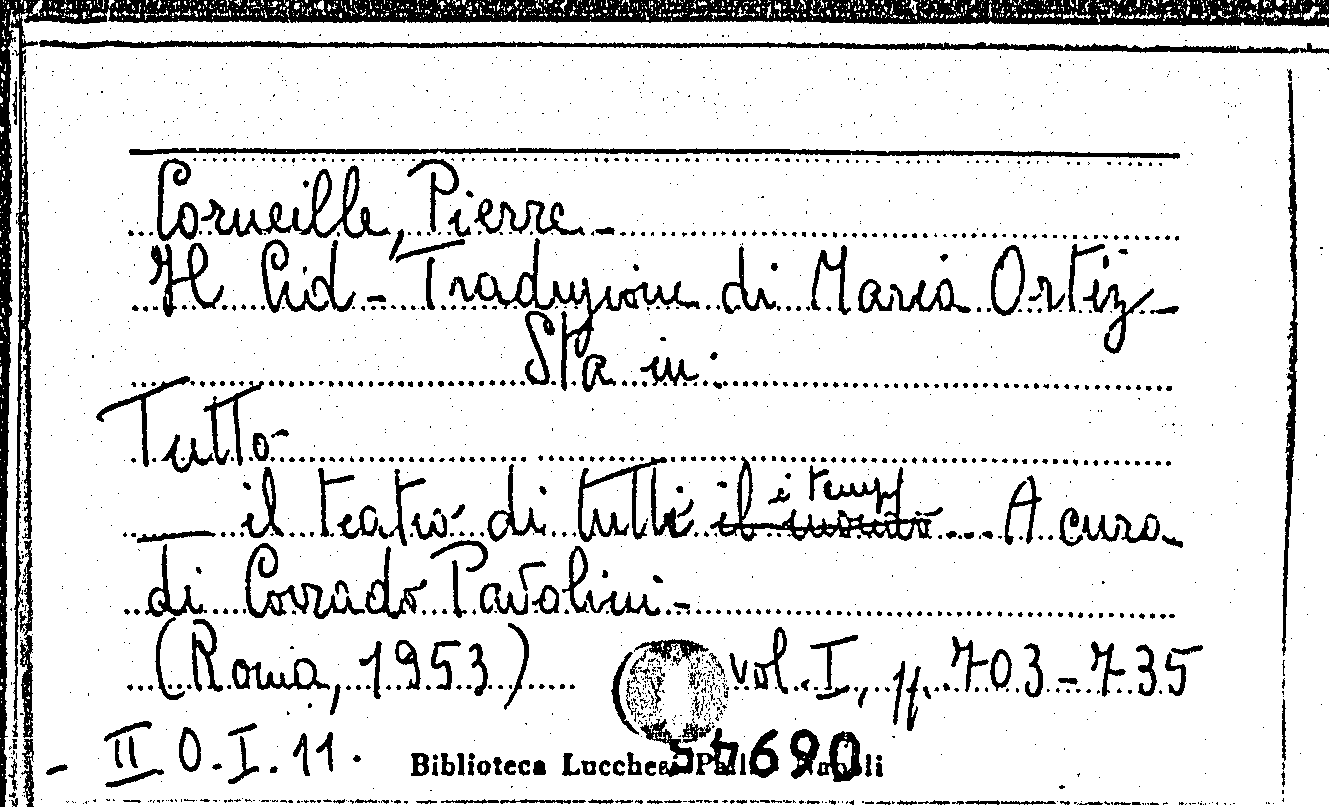 Corneille, Pierre -
Il Cid - Traduzione di Maria Ortiz -
Sta in:
Tutto
il teatro di tutti il mondo i tempi ... A cura
di Corrado Pavolini -
(Roma, 1953) vol. I, pp. 703-735
- II O.I.11.
Biblioteca Lucchesi Palli Napoli